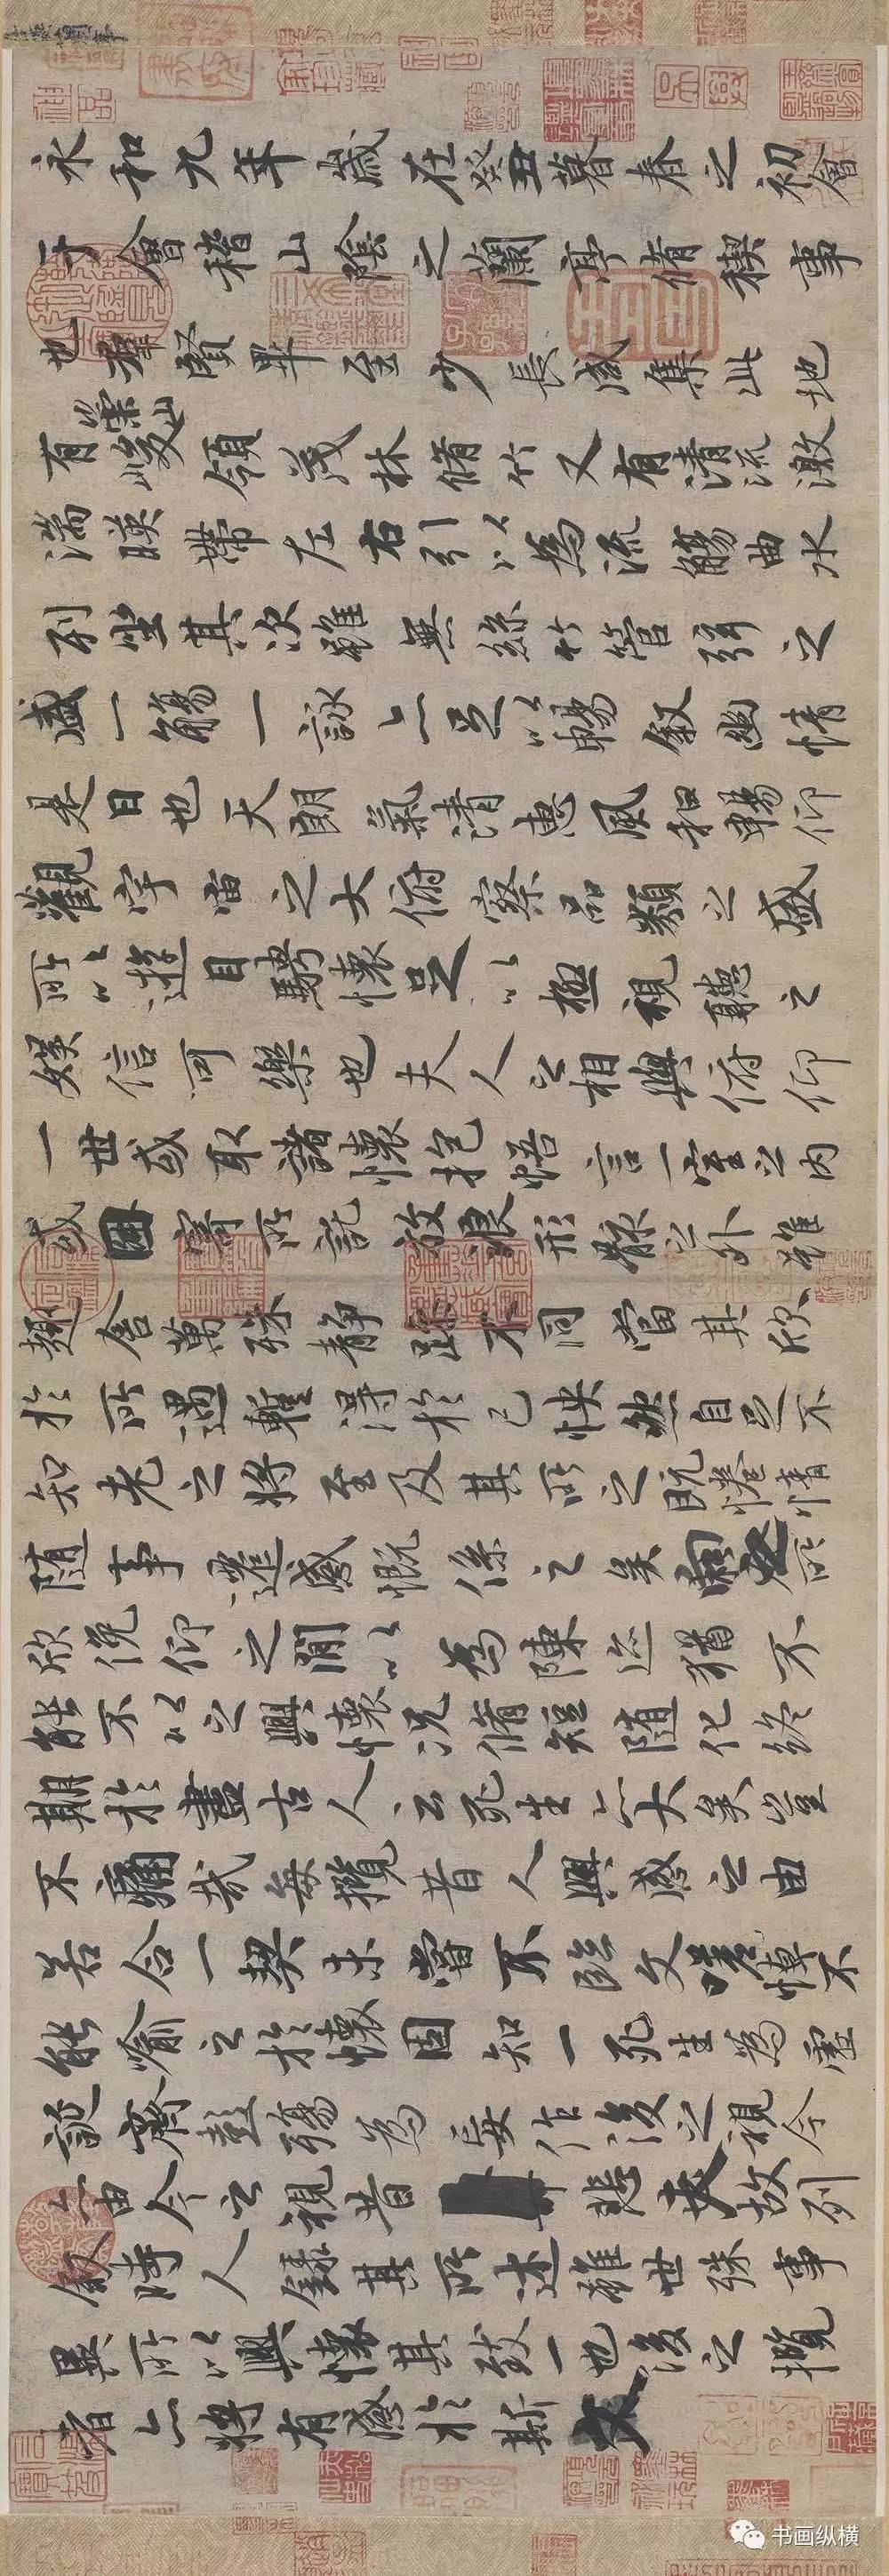 永和九年歲在癸丑暮春之初會
于會稽山陰之蘭亭脩稧事
也羣賢畢至少長咸集此地
有崇山峻領茂林脩竹又有清流激
湍暎帶左右引以為流觴曲水
列坐其次雖無絲竹管弦之
盛一觴一詠亦足以暢敘幽情
是日也天朗氣清惠風和暢仰
觀宇宙之大俯察品類之盛
所以遊目騁懷足以極視聽之
娛信可樂也夫人之相與俯仰
一世或取諸懷抱悟言一室之內
或因寄所託放浪形骸之外雖
趣舍萬殊靜躁不同當其欣
於所遇暫得於己怏然自足不
知老之將至及其所之既惓情
隨事遷感慨係之矣向之所
欣俛仰之閒以為陳迹猶不
能不以之興懷況脩短隨化終
期於盡古人云死生亦大矣豈
不痛哉每攬昔人興感之由
若合一契未嘗不臨文嗟悼不
能喻之於懷固知一死生為虛
誕齊彭殤為妄作後之視今
亦由今之視昔悲夫故列
敘時人錄其所述雖世殊事
異所以興懷其致一也後之攬
者亦將有感於斯文
书画纵横